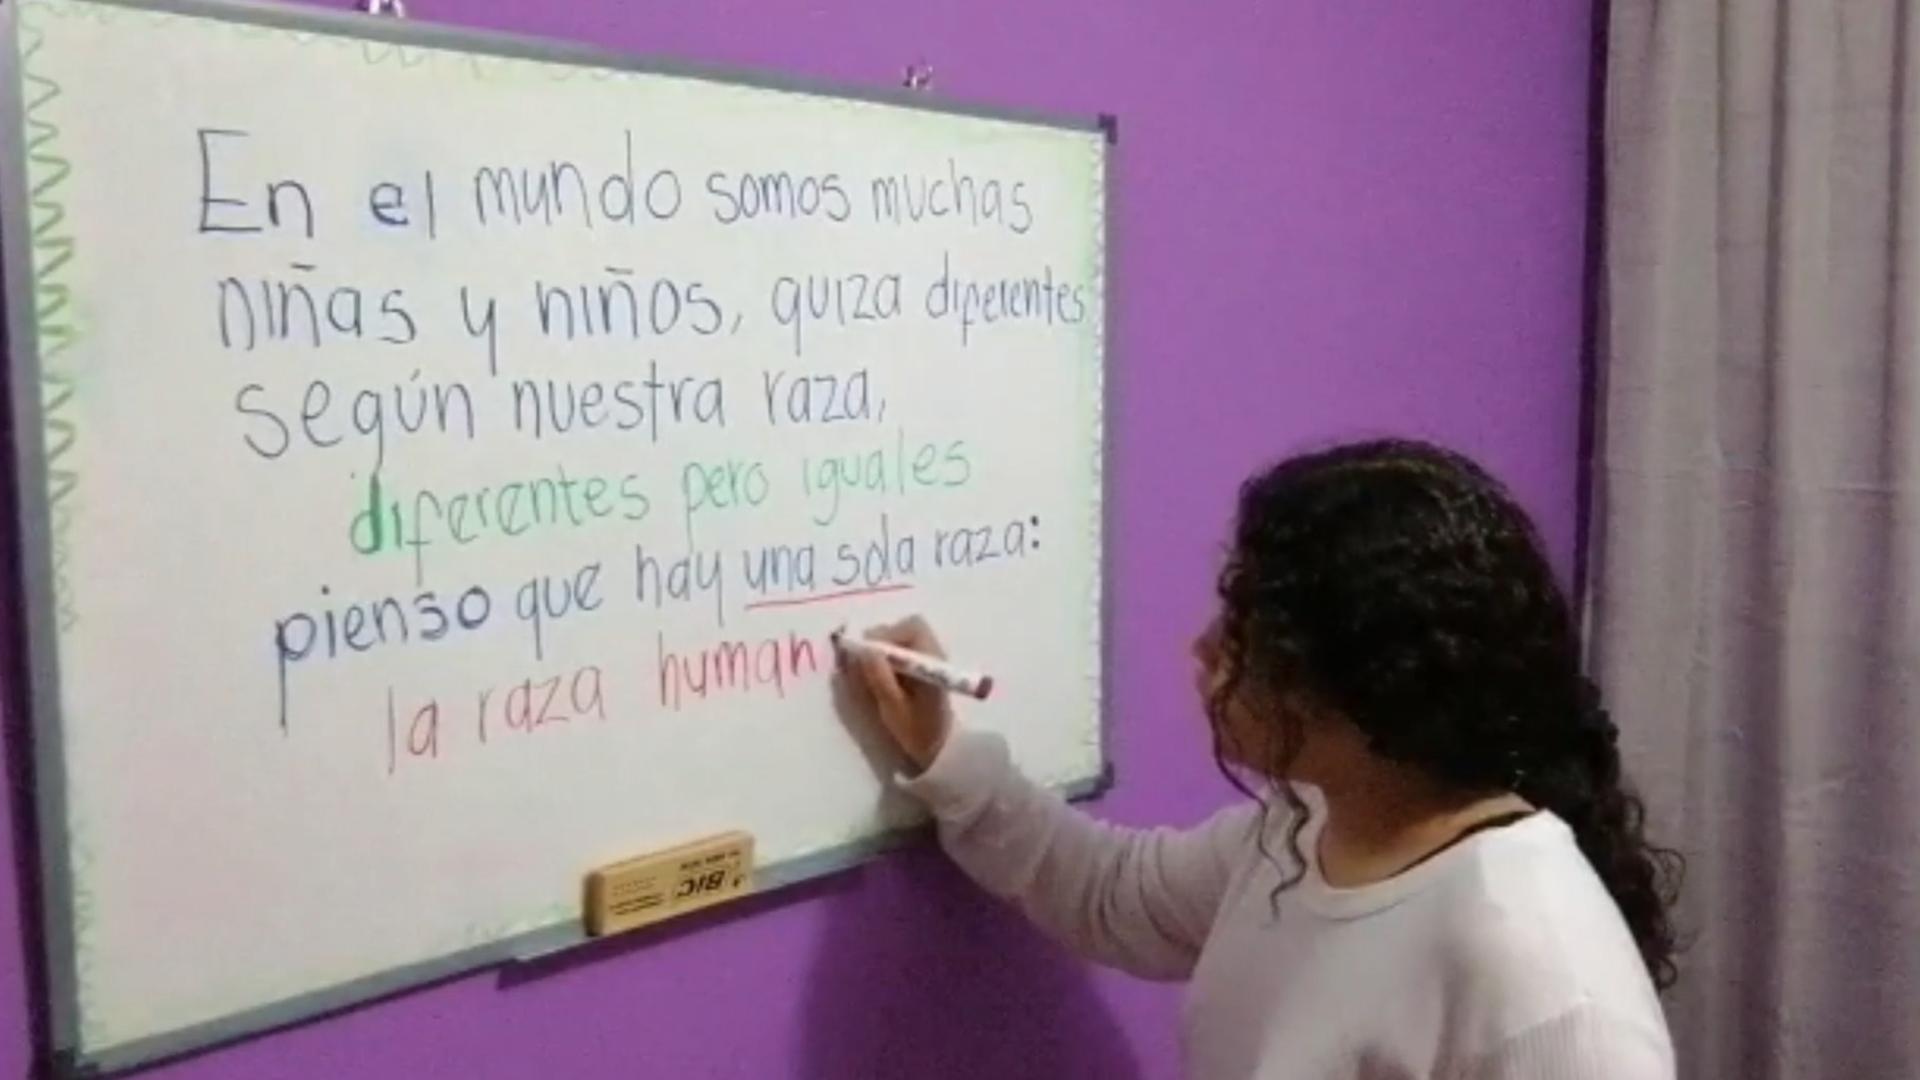 En el mundo somos muchas
niñas y niños, quiza diferentes
según nuestra raza,
diferentes pero iguales
pienso que hay una sola raza:
la raza human
BIC